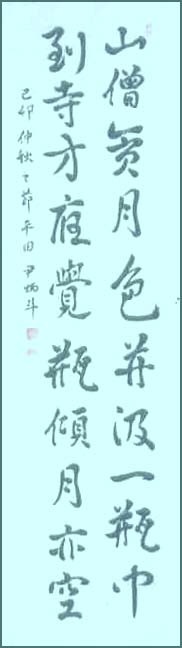 山僧貪月色并汲一瓶中
到寺方應覺瓶傾月亦空
己卯仲秋之節 平田 尹炳斗